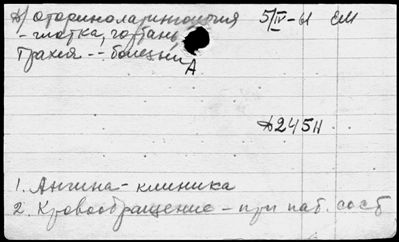 Д) оториноларингология 5/IV-61 ЕМ
- глотка, гортань
трахея -- болезни
А
Д245Н
1. Ангина - клиника
2. Кровообращение - при пат. сост